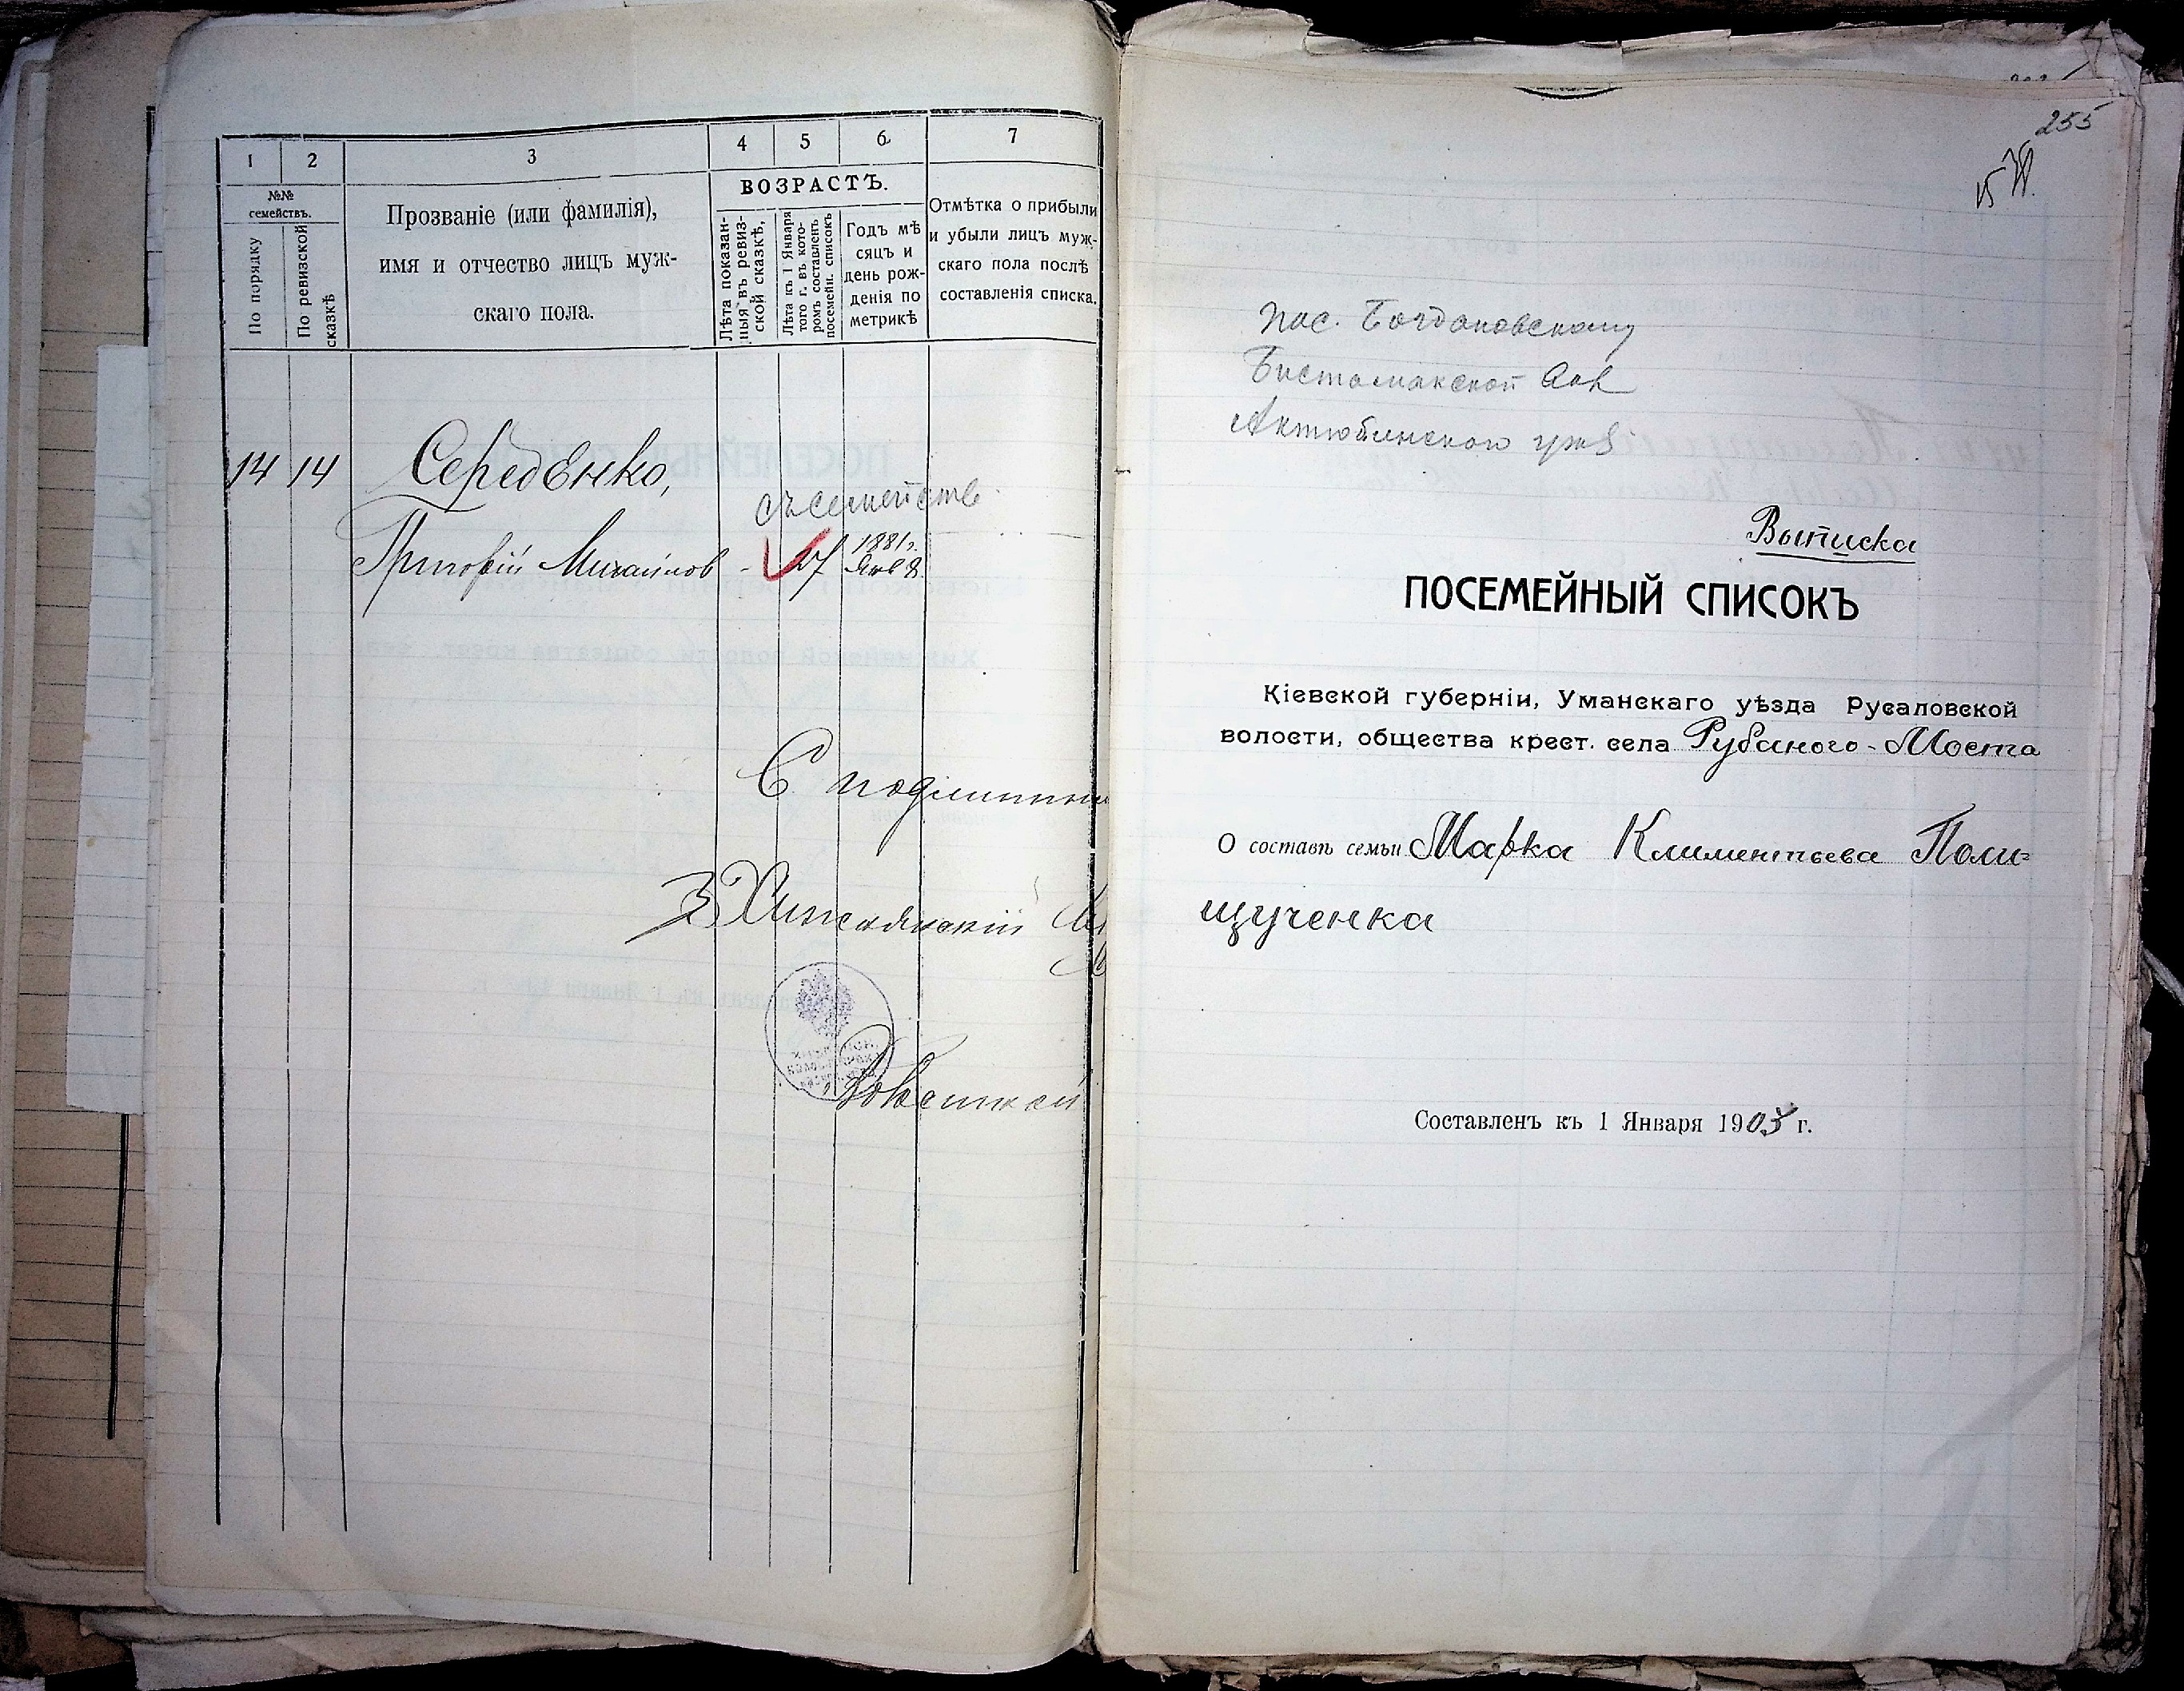 1
2
3
4
5
6
7
№№ семействъ.
По порядку
По ревизской сказкѣ
Прозваніе (или фамилія),
имя и отчество лицъ муж-
скаго пола.
ВОЗРАСТЪ.
Лѣта показан-
ныя въ ревиз-
ской сказкѣ,
Лѣта къ 1 Января
того г. въ кото-
ромъ составленъ
посемейн. списокъ
Годъ мѣ
сяцъ и
день рож-
денія по
метрикѣ
Отмѣтка о прибыли
и убыли лицъ муж-
скаго пола послѣ
составленія списка.
14 14 Середенко,
съ семейств
Григорій Михайлов - 27 1881 г.
Янв 8.
С подлинным
255
пос. Богдановскому
Бистамакской
Актюбинского
Выписка
ПОСЕМЕЙНЫЙ СПИСОКЪ
Кіевской губерніи, Уманскаго уѣзда Русаловской
волости, общества крест. села Рубаного-Моста
О составѣ семьи Марка Климентьева Поли=
щученка
Составленъ къ 1 Января 1905 г.